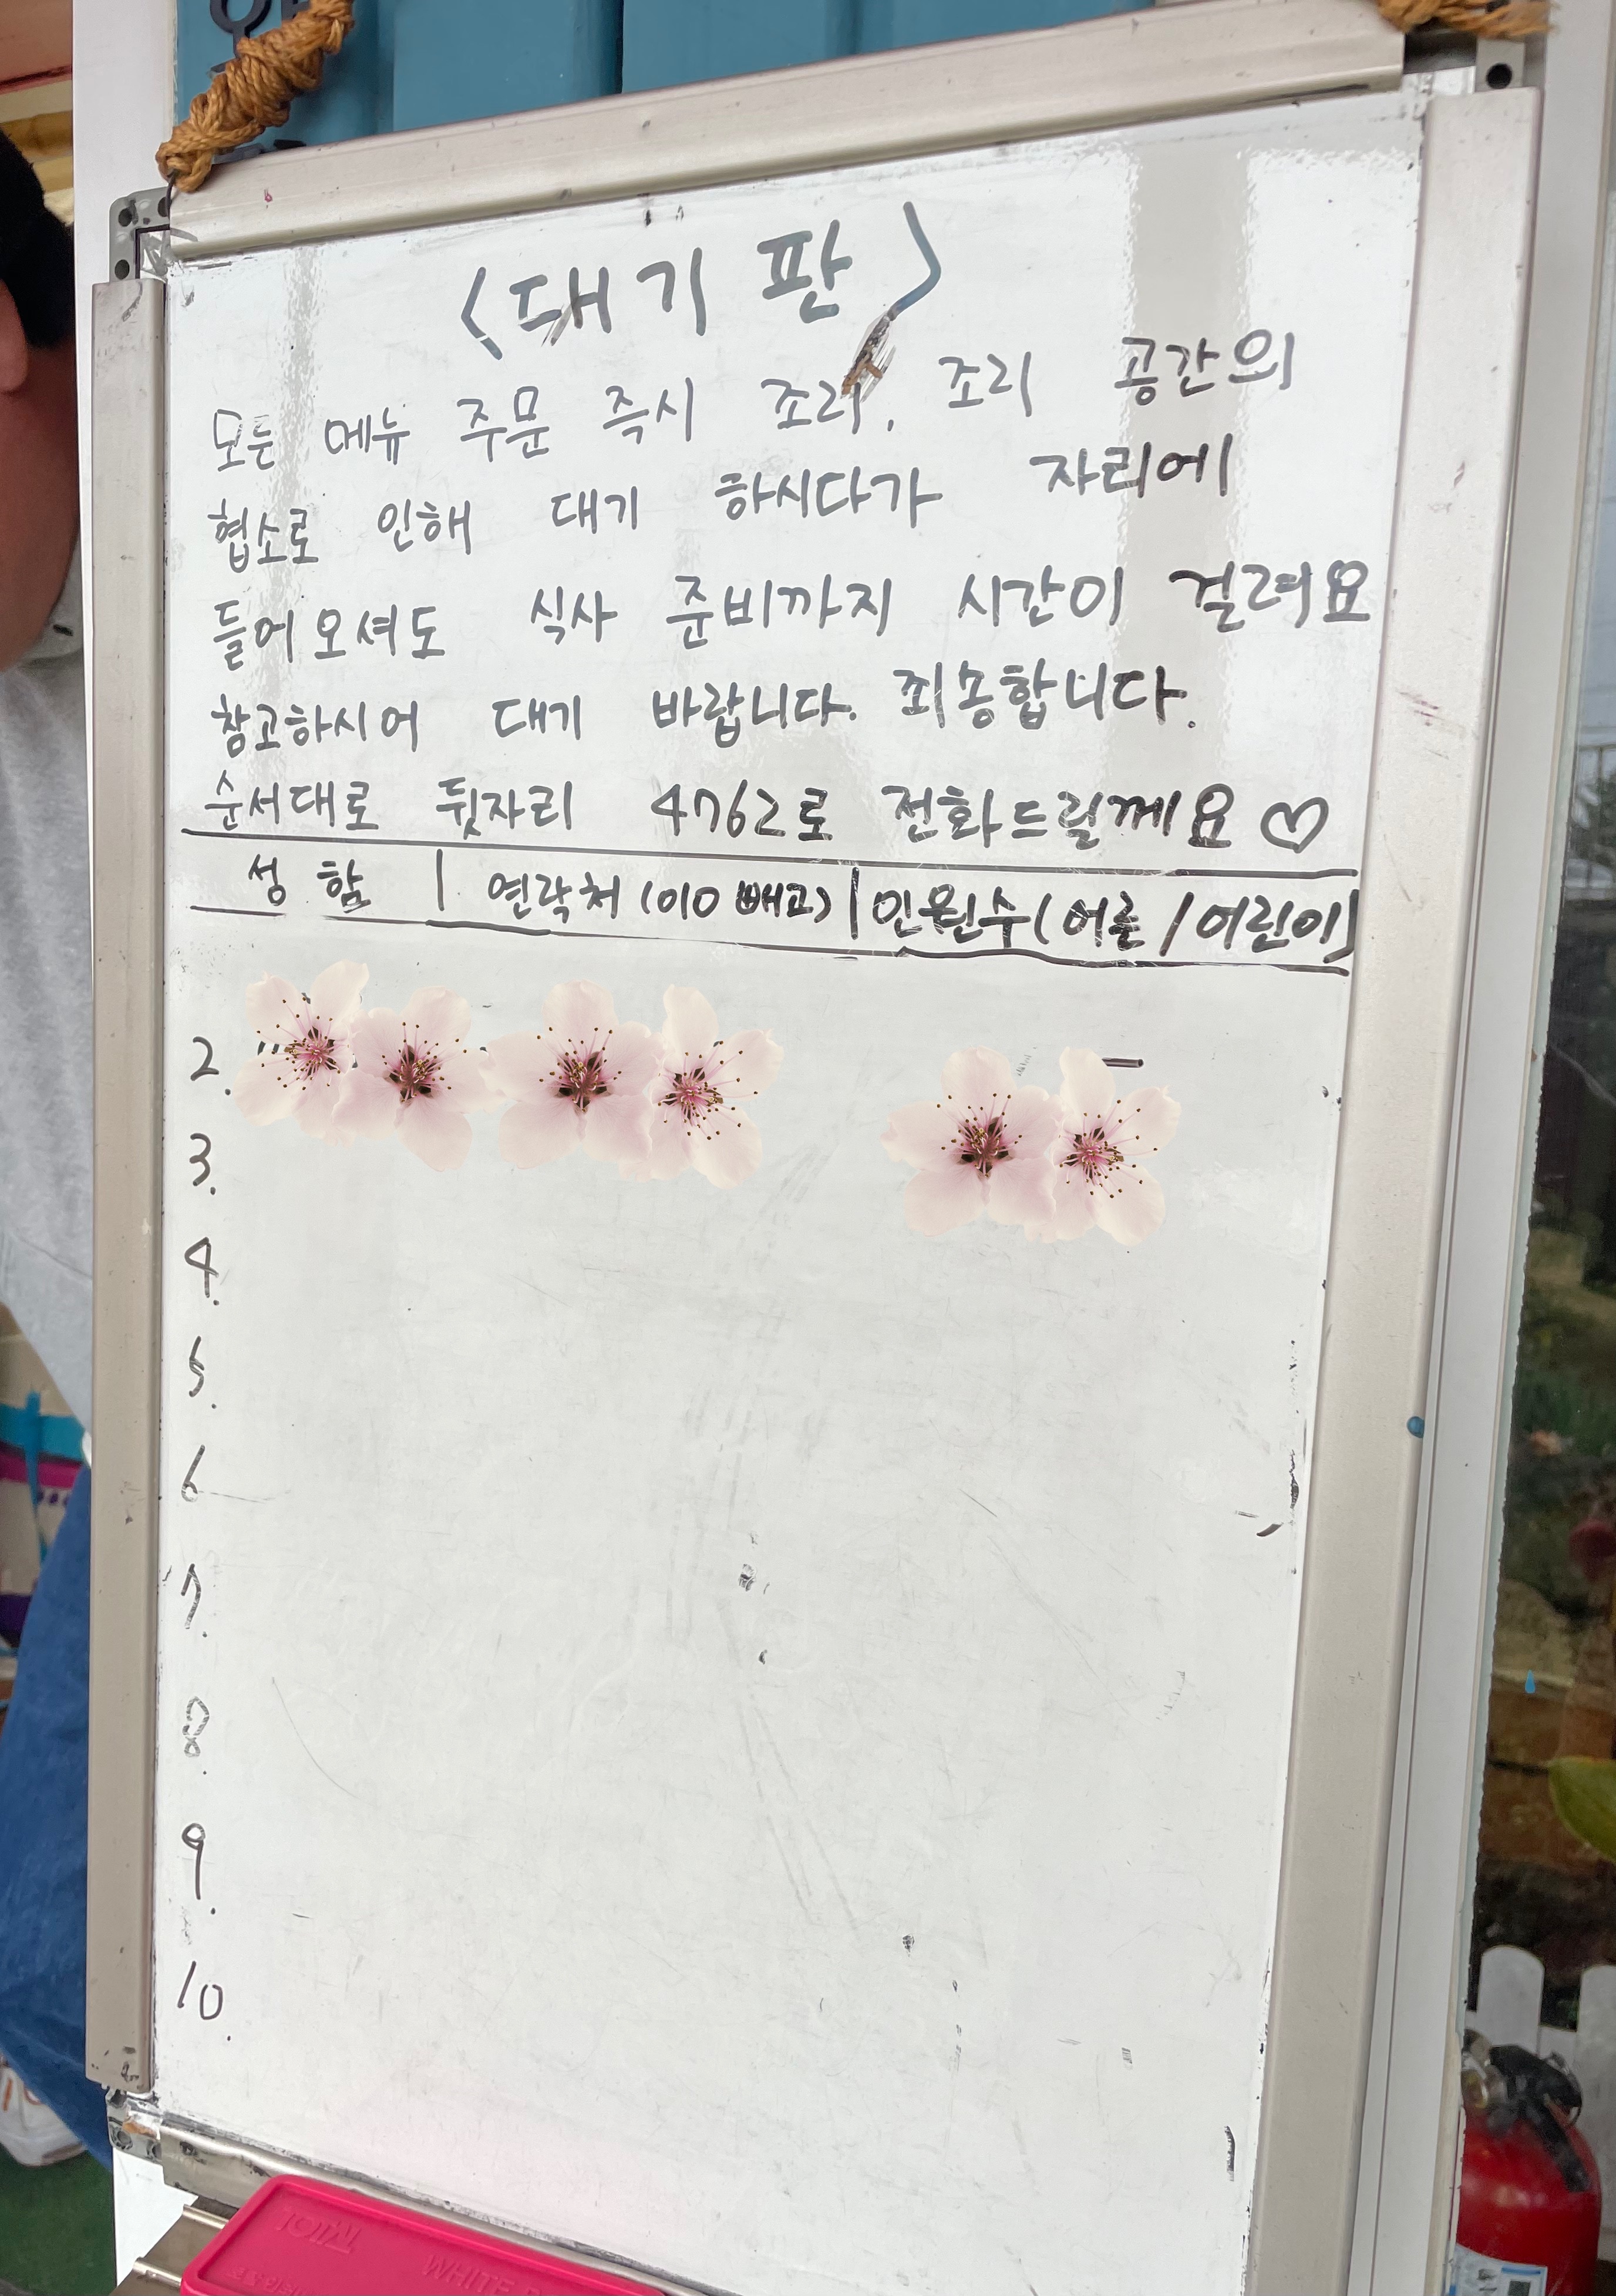 <대기 판>
모든 메뉴 주문 즉시 조리, 조리 공간의
협소로 인해 대기 하시다가 자리에
들어오셔도 식사 준비까지 시간이 걸려요
참고하시어 대기 바랍니다. 죄송합니다.
순서대로 뒷자리 4762로 전화드릴께요♡
성함 | 연락처 (010 빼고) | 인원수 (어른 / 어린이)
2.
3.
4.
5.
6
7.
8.
9.
10.
TOTAL
WHITE